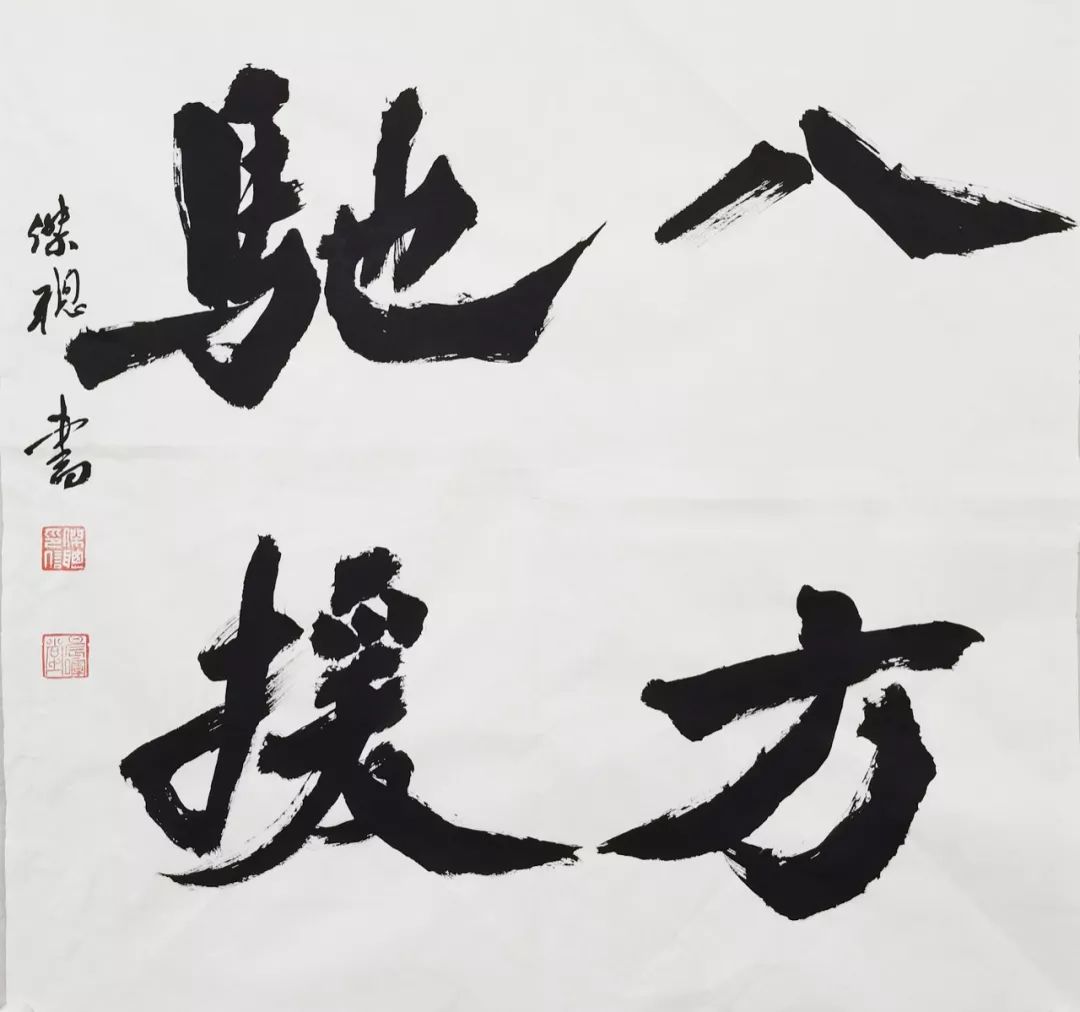 八方
馳援
傑聪書